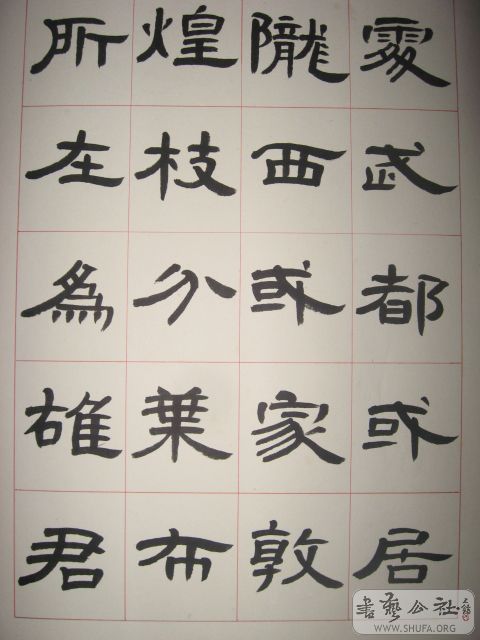 處武都或居
隴西或家敦
煌枝分葉布
所在為雄君
書藝公社
WWW.SHUFA.ORG